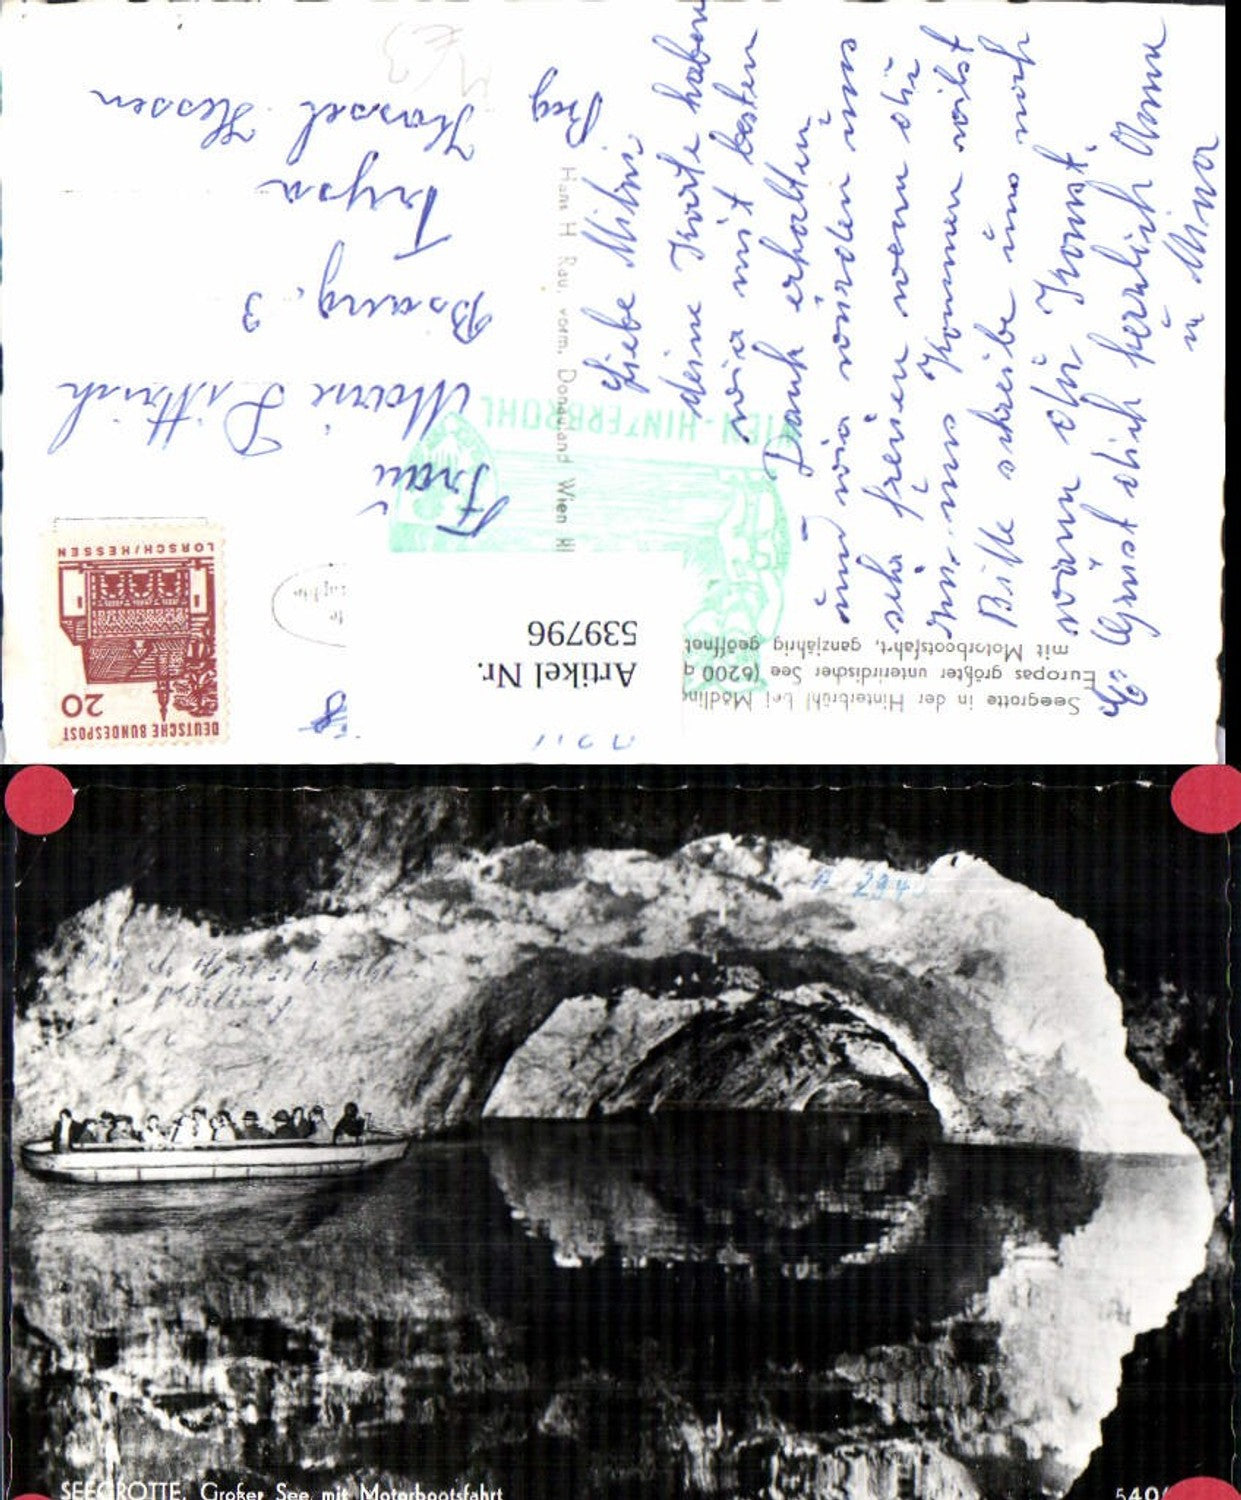 Liebe Mitzi
deine Karte haben
wir mit besten
Dank erhalten
und wir würden uns
sehr freuen wenn du
zu uns Kommen willst
Bitte schreibe uns noch
wann du Kommst.
Es Grüst dich herzlich Anna
u Mina
Frau
Marie Dittrich
Trysa
Kassel Hessen
Hans H. Rau, vorm. Donauland Wien
WIEN-HINTERBRÜHL
Seegrotte in der Hinterbrühl bei Mödling
Europas größter unterirdischer See (6200 q
mit Motorbootsfahrt, ganzjährig geöffnet
Artikel Nr.
539796
DEUTSCHE BUNDESPOST
20
LORSCH/HESSEN
Mödling
SEEGROTTE, Großer See mit Motorbootsfahrt